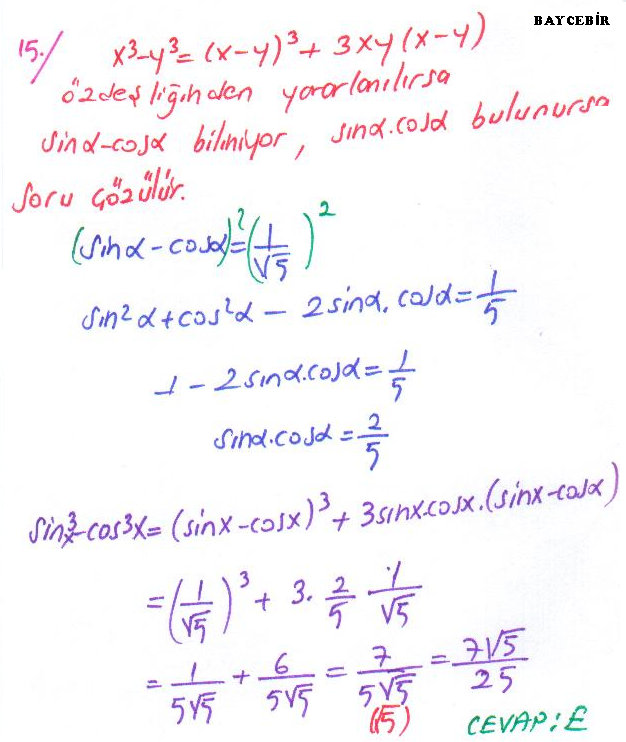 BAYCEBİR
15./ x³-y³=(x-y)³+3xy(x-y)
özdeşliğinden yararlanılırsa
sinα-cosα biliniyor, sinα.cosα bulunursa
soru çözülür.
(sinα-cosα)²=(1/√5)²
sin²α+cos²α-2sinα.cosα=1/5
1-2sinα.cosα=1/5
sinα.cosα=2/5
sin³x-cos³x=(sinx-cosx)³+3sinxcosx.(sinx-cosα)
=(1/√5)³+3.2/5 1/√5
=1/5√5+6/5√5=7/5√5=7√5/25
(√5) CEVAP:E